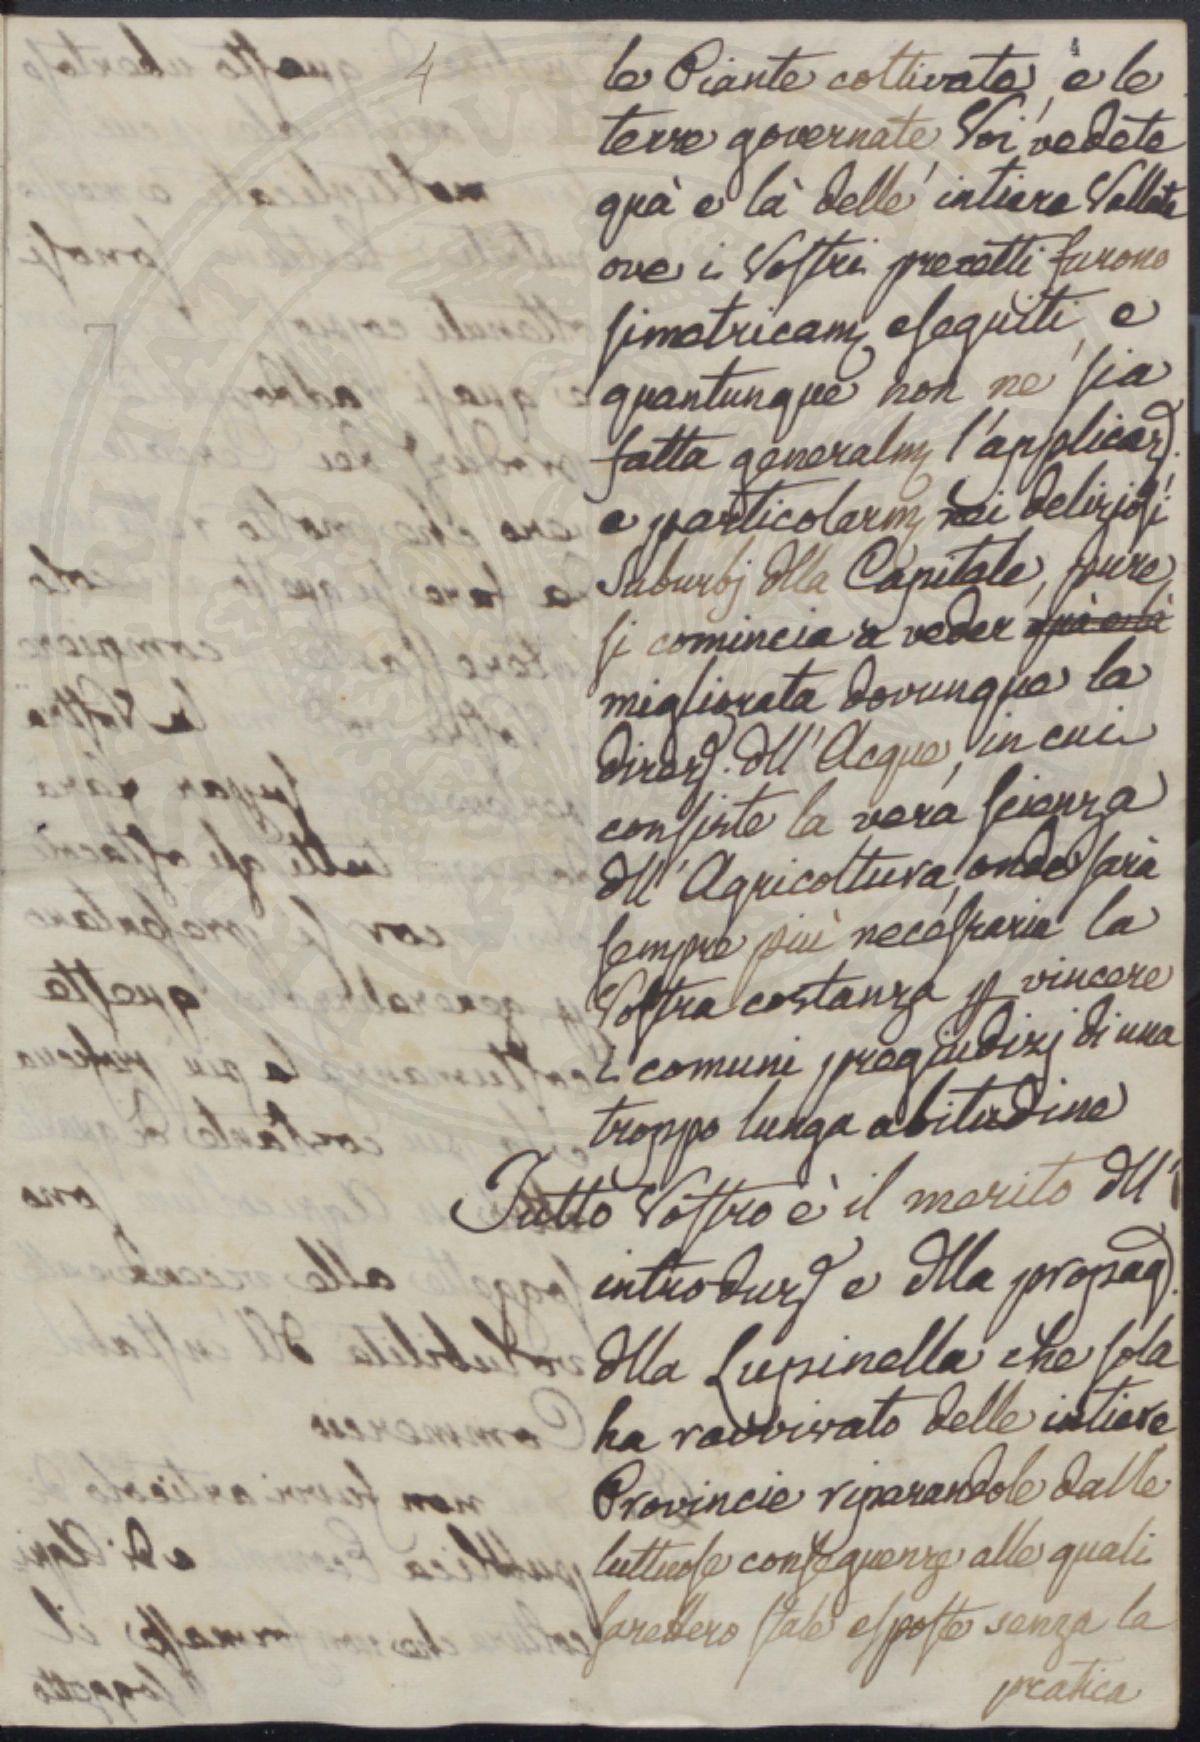 4
4
le Piante coltivate, e le
terre governate Voi vedete
quà e là delle intiere Vallate
ove i Vostri precetti furono
simetricam. eseguiti, e
quantunque non ne sia
fatta generalm. l'applicaz.
e particolarm. nei deliziosi
Suburbj dlla Capitale, pure
si comincia a veder quà e là
migliorata dovunque la
direz. dll'Acque, in cui
consiste la vera scienza
dll'Agricoltura, onde sarà
sempre più necessaria la
Vostra costanza p vincere
i comuni pregiudizj di una
troppo lunga abitudine
Tutto Vostro è il merito dll'
introduz. e dlla propag.
dlla Lupinella che sola
ha ravvivato delle intiere
Provincie riparandole dalle
luttuose conseguenze alle quali
sarebbero state esposte senza la
pratica